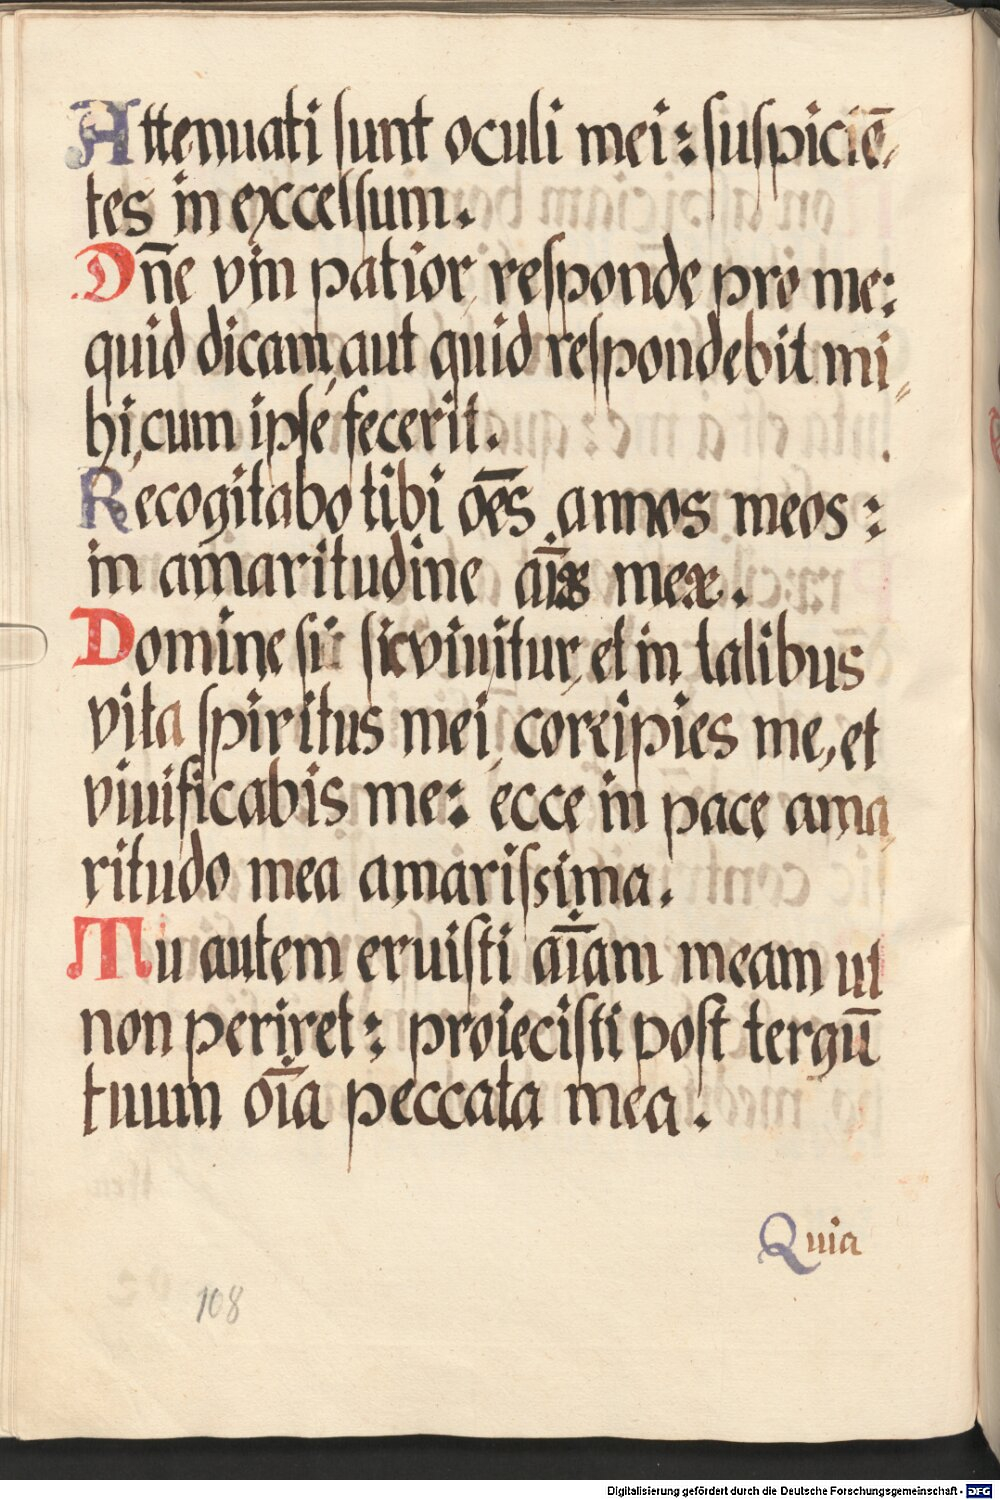 Attenuati sunt oculi mei: suspiciē-
tes in excelsum.
Dñe vim patior, responde pro me:
quid dicam, aut quid respondebit mi-
hi, cum ipse fecerit.
Recogitabo tibi oēs annos meos:
in amaritudine aīæ meæ.
Domine si sic vivitur, et in talibus
vita spiritus mei, corripies me, et
vivificabis me: ecce in pace ama
ritudo mea amarissima.
Tu autem eruisti aīam meam ut
non periret: proiecisti post tergū
tuum oīa peccata mea.
Quia
108
Digitalisierung gefördert durch die Deutsche Forschungsgemeinschaft - DFG